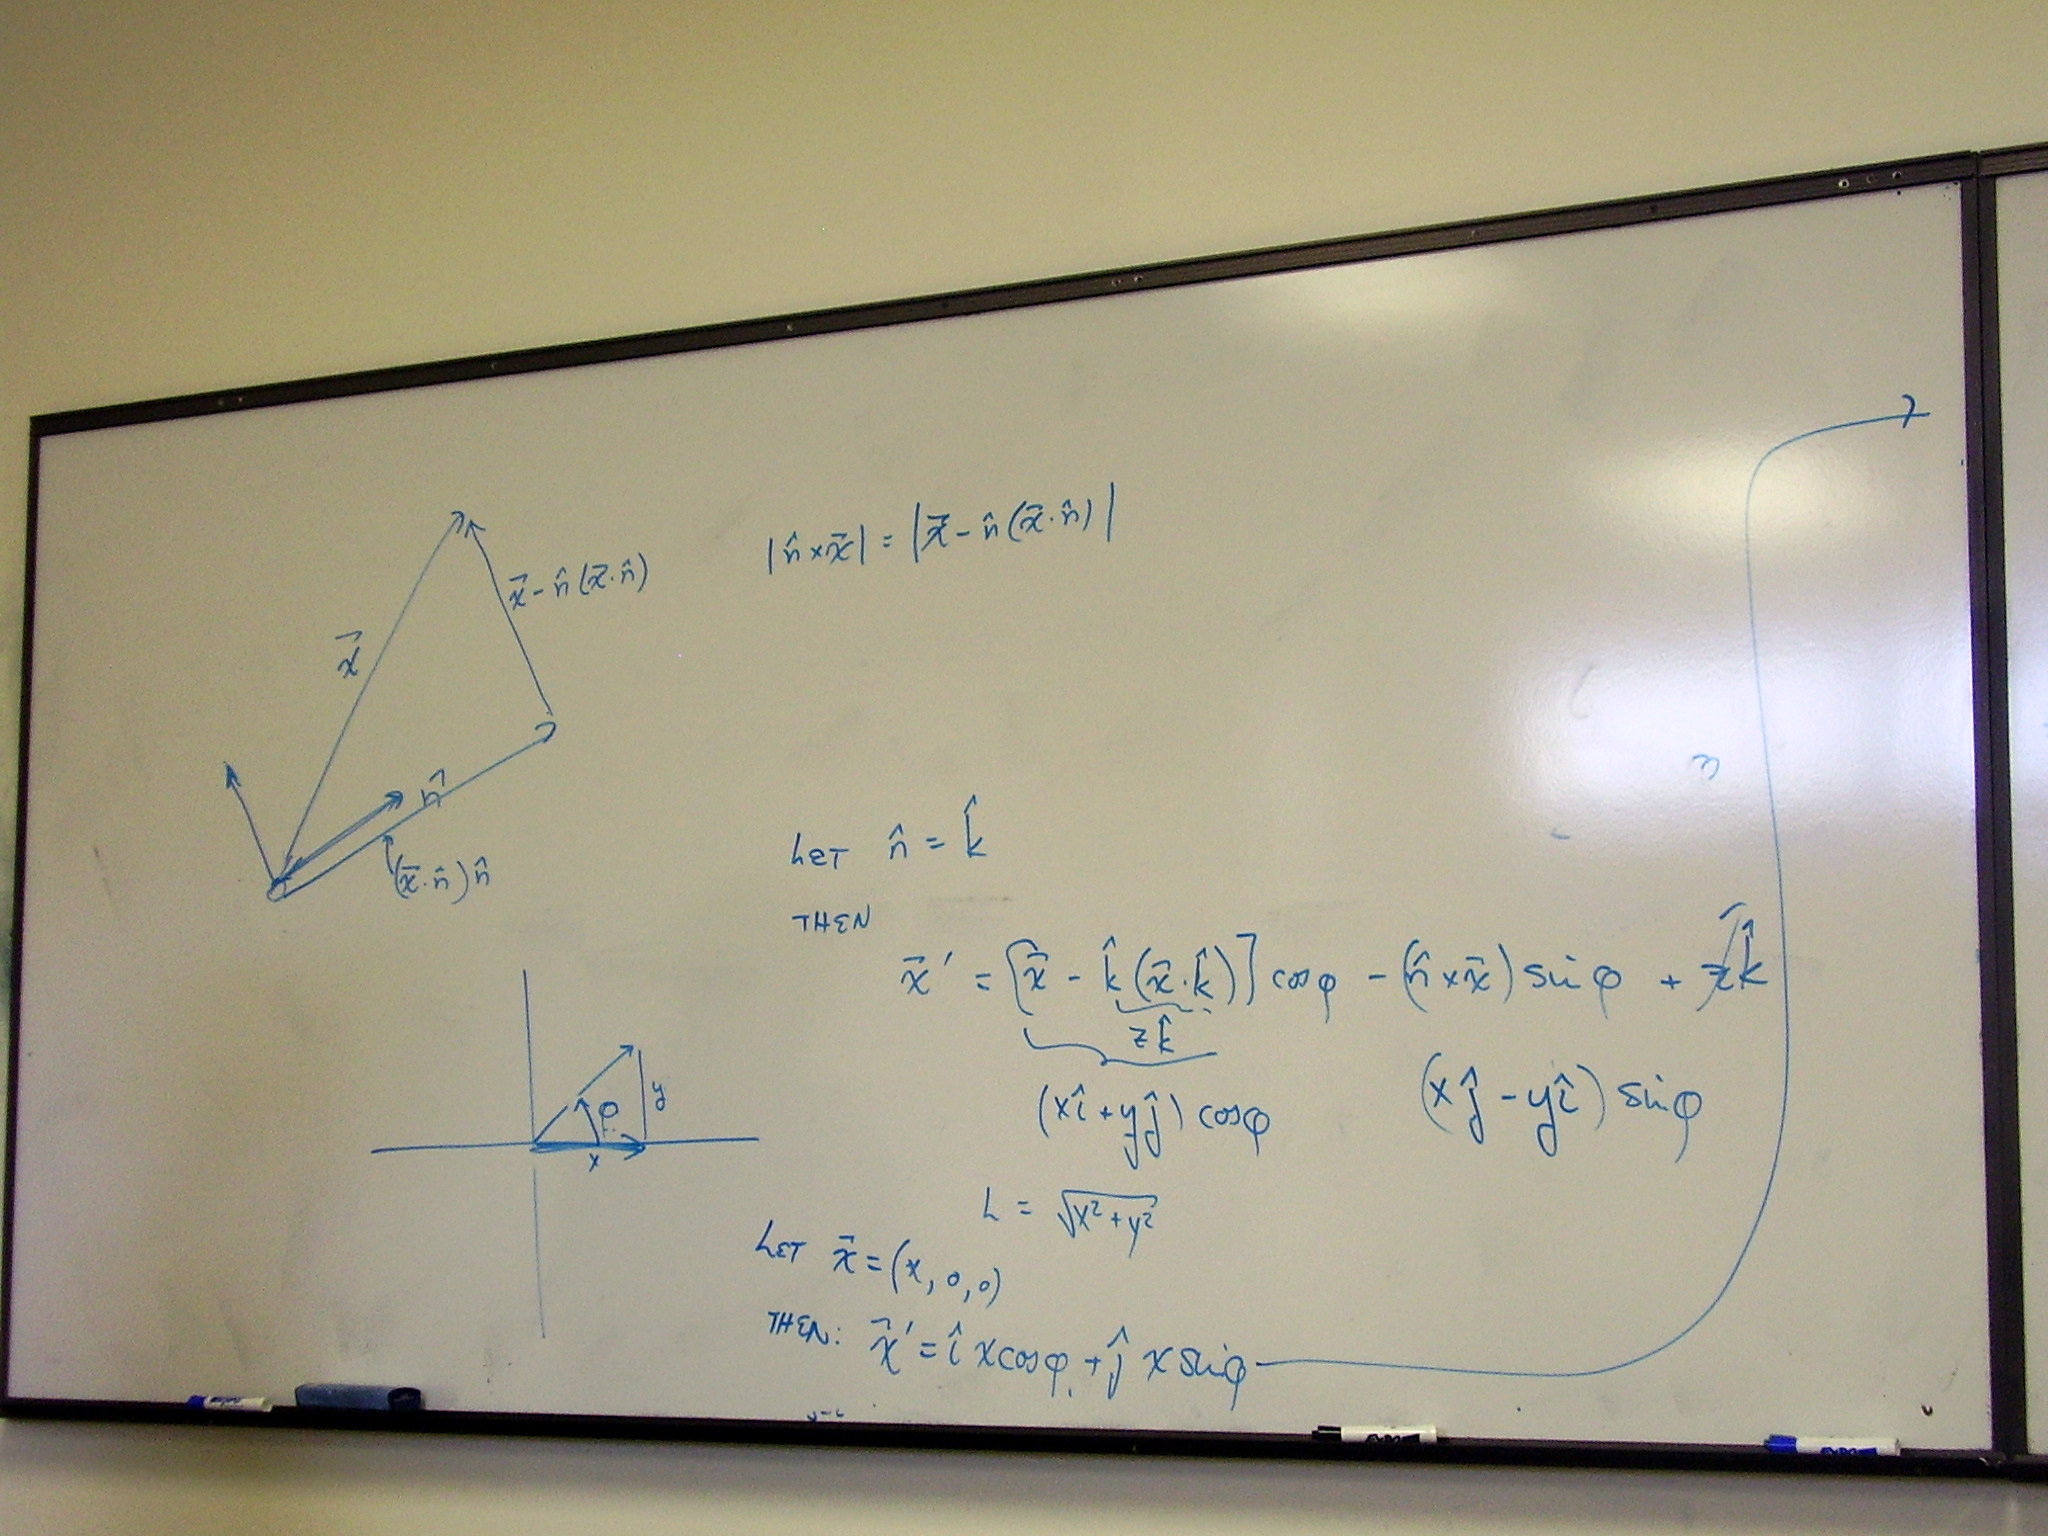 x⃗
x⃗ - n̂ (x⃗·n̂)
n⃗
(x⃗·n̂) n̂
|n̂ × x⃗| = |x⃗ - n̂ (x⃗·n̂)|
LET n̂ = k̂
THEN
x⃗' = [x⃗ - k̂ (x⃗·k̂)] cos φ - (n̂ × x⃗) sin φ + z k̂
z k̂
(x î + y ĵ) cos φ
(x ĵ - y î) sin φ
L = √x² + y²
φ
y
x
LET x⃗ = (x, 0, 0)
THEN: x⃗' = î x cos φ + ĵ x sin φ